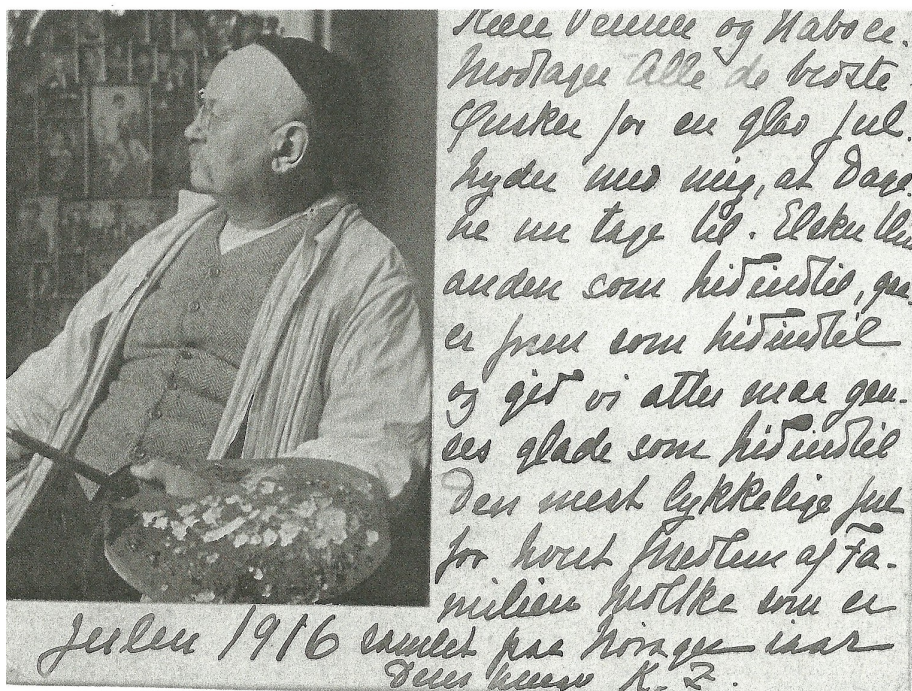 Kære Venner og Naboer.
Modtager Alle de bedste
Ønsker for en glad Jul.
Nyder med mig, at Dage
ne nu tage til. Elsker hin
anden som hidindtil, gaa
er frem som hidindtil
og gid vi atter maa gen-
ses glade som hidindtil
Den mest lykkelige Jul
for hvert Medlem af Fa-
milien Moltke som er
Julen 1916 samlet paa Nörager iaar
K. Z.